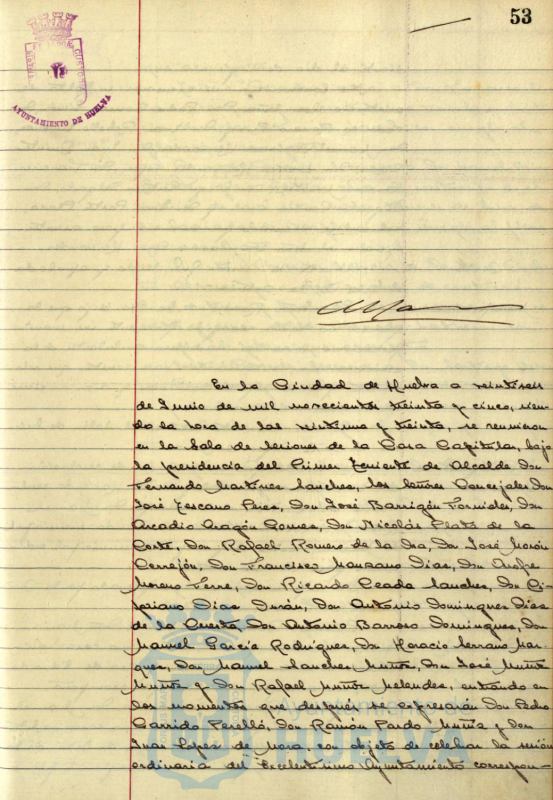 53
AYUNTAMIENTO DE HUELVA
En la Ciudad de Huelva a veintiseis
de Junio de mil novecientos treinta y cinco, sien-
do la hora de las veintiuna y treinta, se reunieron
en la Sala de Sesiones de la Casa Capitular, bajo
la presidencia del Primer Teniente de Alcalde Don
Fernando Martinez Sanchez, los Señores Concejales Don
José Toscano Perez, Don José Barrigón Fornieles, Don
Arcadio Aragón Gomez, Don Nicolás Plata de la
Corte, Don Rafael Romero de la Osa, Don José Morón
Cerrejón, Don Francisco Manzano Dias, Don Onofre
Moreno Ferre, Don Ricardo Ceada Sanchez, Don Ci-
priano Dias Durán, Don Antonio Dominguez Dias
de la Cuesta, Don Antonio Barroso Dominguez, Don
Manuel Garcia Rodriguez, Don Horacio Serrano Mar-
quez, Don Manuel Sanchez Muñiz, Don José Muñiz
Muñiz y Don Rafael Muñoz Melendez, entrando en
los momentos que después se expresarán Don Pedro
Garrido Perelló, Don Ramón Pardo Muñiz y Don
Juan Lopez de Mora con objeto de celebrar la sesión
ordinaria del Excelentisimo Ayuntamiento correspon-
HUELVA